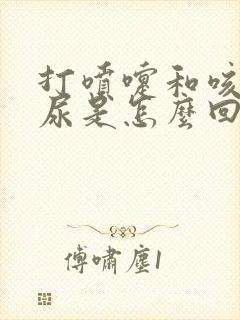 打噴嚏和咳
尿是怎麼回
傅嘯塵1